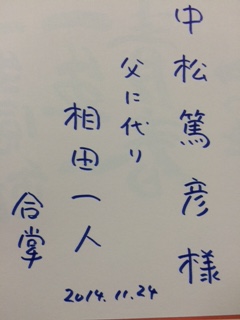 中松篤彦様
父に代り
相田一人
合掌
2014.11.24